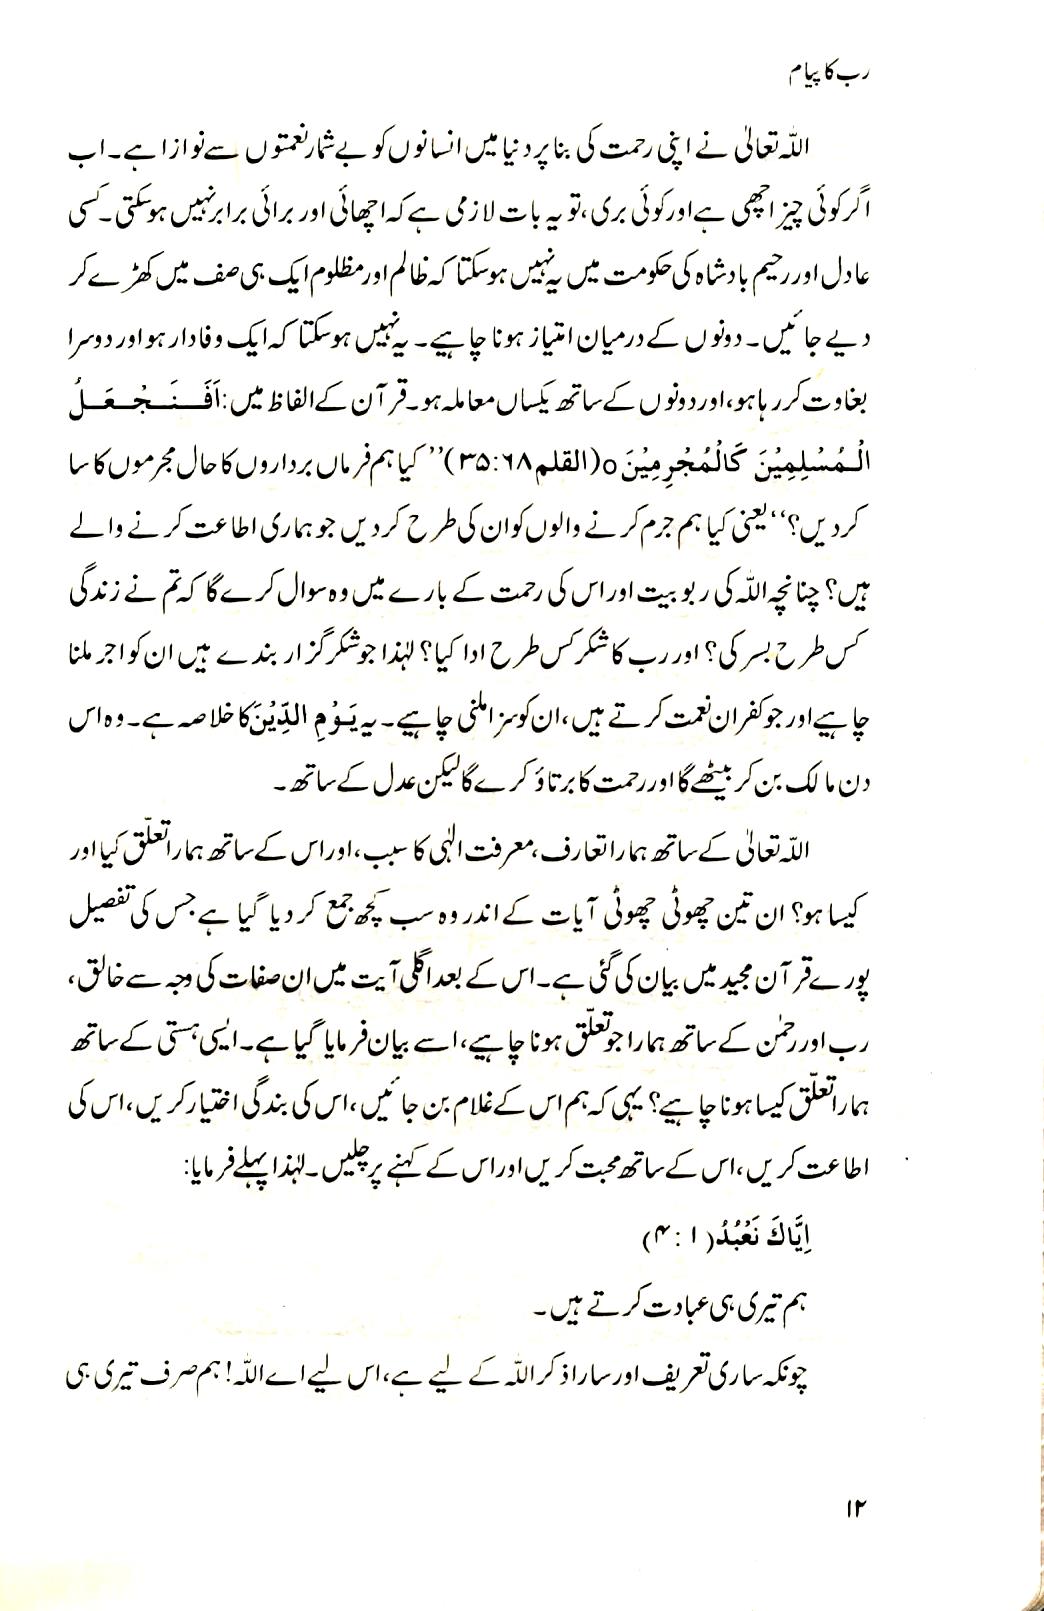 رب کا پیام
اللہ تعالیٰ نے اپنی رحمت کی بنا پر دنیا میں انسانوں کو بے شمار نعمتوں سے نوازا ہے۔ اب
اگر کوئی چیز اچھی ہے اور کوئی بری، تو یہ بات لازمی ہے کہ اچھائی اور برائی برابر نہیں ہو سکتی۔ کسی
عادل اور رحیم بادشاہ کی حکومت میں یہ نہیں ہو سکتا کہ ظالم اور مظلوم ایک ہی صف میں کھڑے کر
دیے جائیں۔ دونوں کے درمیان امتیاز ہونا چاہیے۔ یہ نہیں ہو سکتا کہ ایک وفادار ہو اور دوسرا
بغاوت کر رہا ہو، اور دونوں کے ساتھ یکساں معاملہ ہو۔ قرآن کے الفاظ میں: اَفَنَجْعَلُ
الْمُسْلِمِيْنَ كَالْمُجْرِمِيْنَ o (القلم ۶۸:۳۵) ’’کیا ہم فرماں برداروں کا حال مجرموں کا سا
کر دیں؟‘‘ یعنی کیا ہم جرم کرنے والوں کو ان کی طرح کر دیں جو ہماری اطاعت کرنے والے
ہیں؟ چنانچہ اللہ کی ربوبیت اور اس کی رحمت کے بارے میں وہ سوال کرے گا کہ تم نے زندگی
کس طرح بسر کی؟ اور رب کا شکر کس طرح ادا کیا؟ لہٰذا جو شکر گزار بندے ہیں ان کو اجر ملنا
چاہیے اور جو کفران نعمت کرتے ہیں، ان کو سزا ملنی چاہیے۔ یہ يَوْمِ الدِّيْنَ کا خلاصہ ہے۔ وہ اس
دن مالک بن کر بیٹھے گا اور رحمت کا برتاؤ کرے گا لیکن عدل کے ساتھ۔
اللہ تعالیٰ کے ساتھ ہمارا تعارف، معرفت الٰہی کا سبب، اور اس کے ساتھ ہمارا تعلّق کیا اور
کیسا ہو؟ ان تین چھوٹی چھوٹی آیات کے اندر وہ سب کچھ جمع کر دیا گیا ہے جس کی تفصیل
پورے قرآن مجید میں بیان کی گئی ہے۔ اس کے بعد اگلی آیت میں ان صفات کی وجہ سے خالق،
رب اور رحمٰن کے ساتھ ہمارا جو تعلّق ہونا چاہیے، اسے بیان فرمایا گیا ہے۔ ایسی ہستی کے ساتھ
ہمارا تعلّق کیسا ہونا چاہیے؟ یہی کہ ہم اس کے غلام بن جائیں، اس کی بندگی اختیار کریں، اس کی
اطاعت کریں، اس کے ساتھ محبت کریں اور اس کے کہنے پر چلیں۔ لہٰذا پہلے فرمایا:
اِيَّاكَ نَعْبُدُ (۱:۴)
ہم تیری ہی عبادت کرتے ہیں۔
چونکہ ساری تعریف اور سارا ذکر اللہ کے لیے ہے، اس لیے اے اللہ! ہم صرف تیری ہی
۱۲